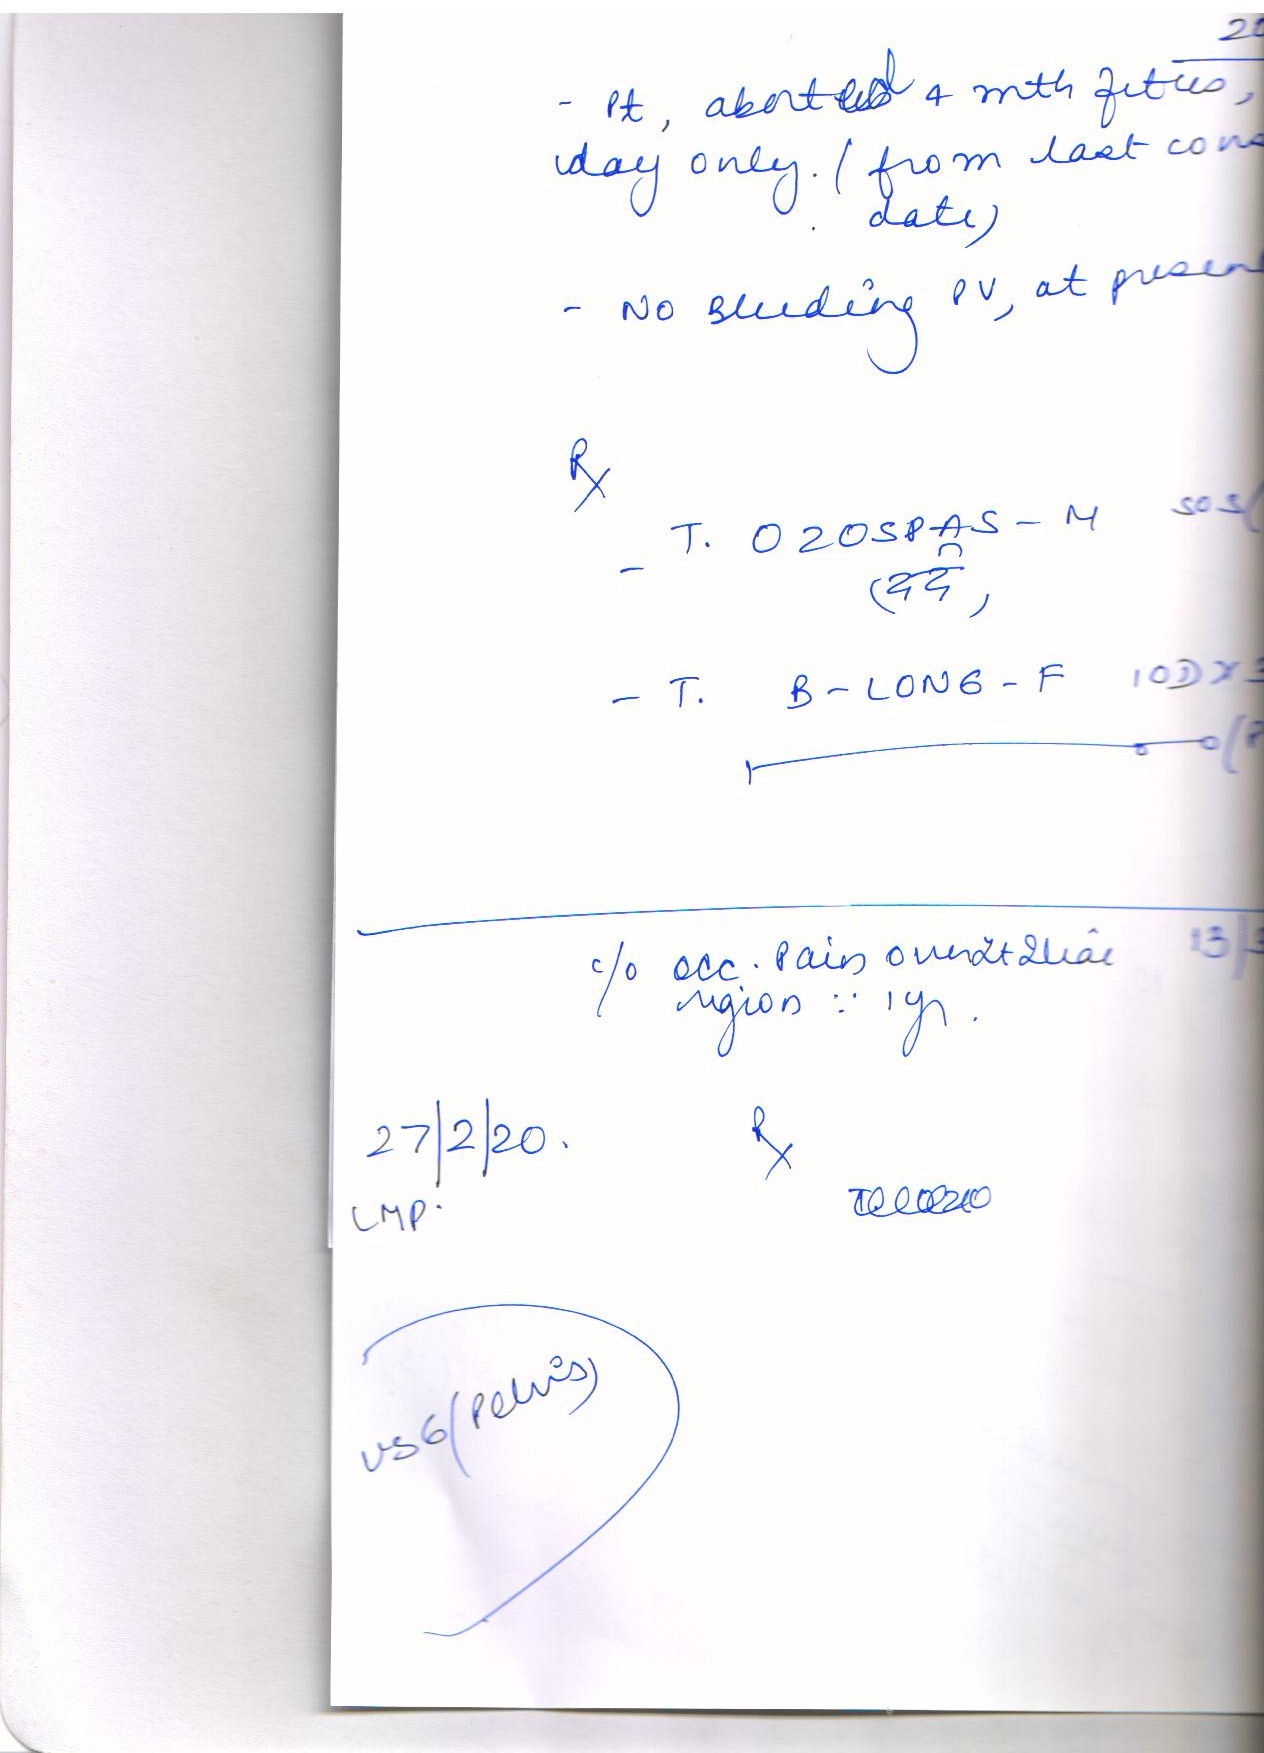 20
- Pt, aborted 4 mth fetus,
day only. (from last cons
date)
- No Bleeding PV, at presen
Rx
- T. OZOSPAS - M SOS(
(दर्द)
- T. B-LONG-F 10D X 3
(P
13/3
c/o occ. Pain over Rt Iliac
region ∵ 1yr.
27/2/20.
LMP.
Rx
USG (Pelvis)